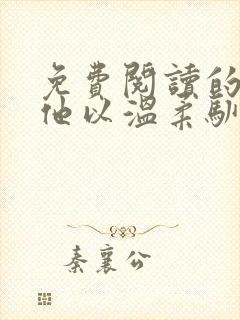 免費閱讀的
他以溫柔馴
秦襄公